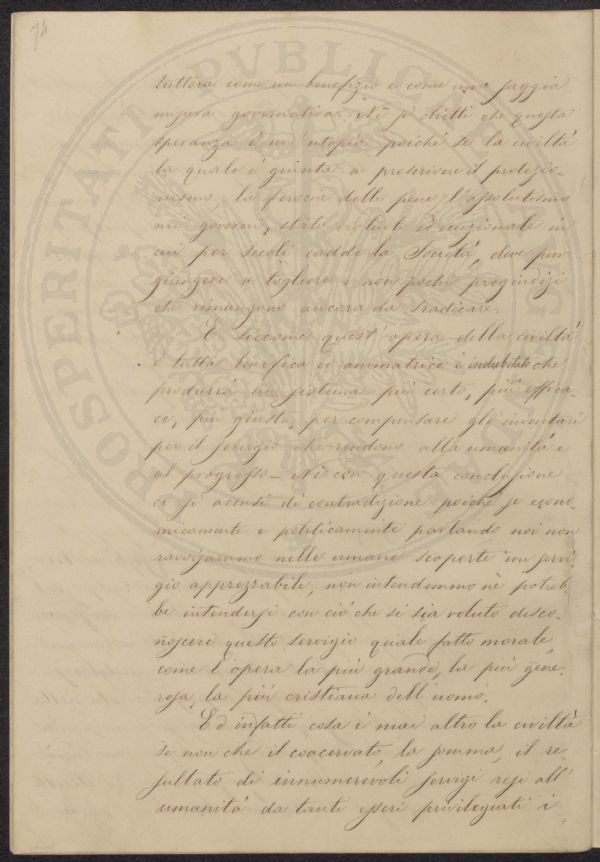 74
PROSPERITATI PVBLICAE
tuttora come un benefizio e come una saggia
misura governativa. Nè si obietti che questa
speranza è un' utopia poichè se la civiltà
la quale è giunta a proscrivere il protezio-
nismo, la ferocia delle pene, l'assolutismo
nei governi, stato violento ed eccezionale in
cui per secoli cadde la Società, deve pur
giungere a togliere i non pochi pregiudizî
che rimangono ancora da sradicare.
E siccome quest' opera della civiltà
è tutta benefica ed animatrice è indubitato che
produrrà un sistema più certo, più effica-
ce, più giusto, per compensare gli inventori
per il servigio che rendono alla umanità e
al progresso - Nè con questa conclusione
ci si accusi di contradizione poichè se econo-
micamente e politicamente parlando noi non
ravvisammo nelle umane scoperte un servi-
gio apprezzabile, non intendemmo nè potreb-
be intendersi con ciò che si sia voluto disco-
noscere questo servigio quale fatto morale,
come l' opera la più grande, la più gene-
rosa, la più cristiana dell' uomo.
Ed infatti cosa è mai altro la civiltà
se non che il coacervato, la somma, il re-
sultato di innumerevoli servigi resi all'
umanità da tanti esseri privilegiati i